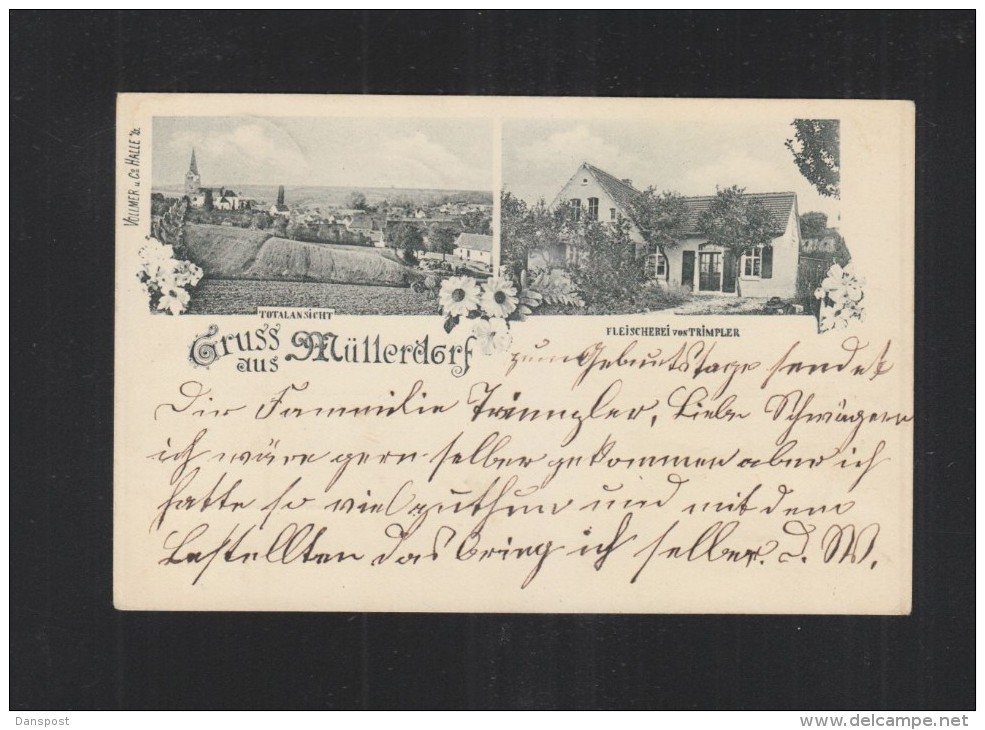 VOLLMER u. Co HALLE a/S.
TOTALANSICHT
FLEISCHEREI VON TRIMPLER
Gruss aus Müllerdorf
zum Geburtstage sendet
Die Fammilie Trimmpler, Liebe Schwägern
ich wäre gern selber gekommen aber ich
hatte so viel zuthun und mit dem
Bestellten das bring ich selber. D. W.
Danspost
www.delcampe.net